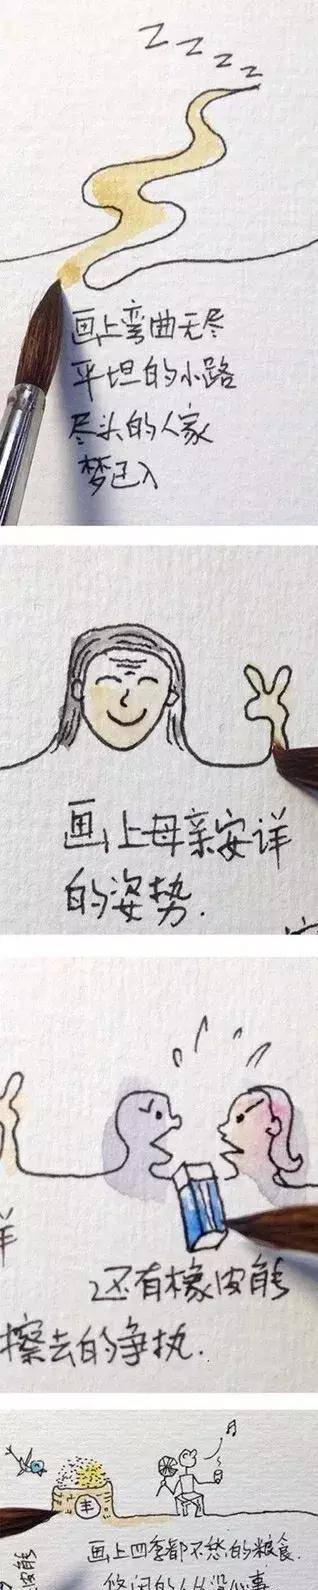 z z z z
画上弯曲无尽
平坦的小路
尽头的人家
梦已入
画上母亲安详
的姿势.
还有橡皮能
擦去的争执.
丰
画上四季都不愁的粮食.
悠闲的人从没心事